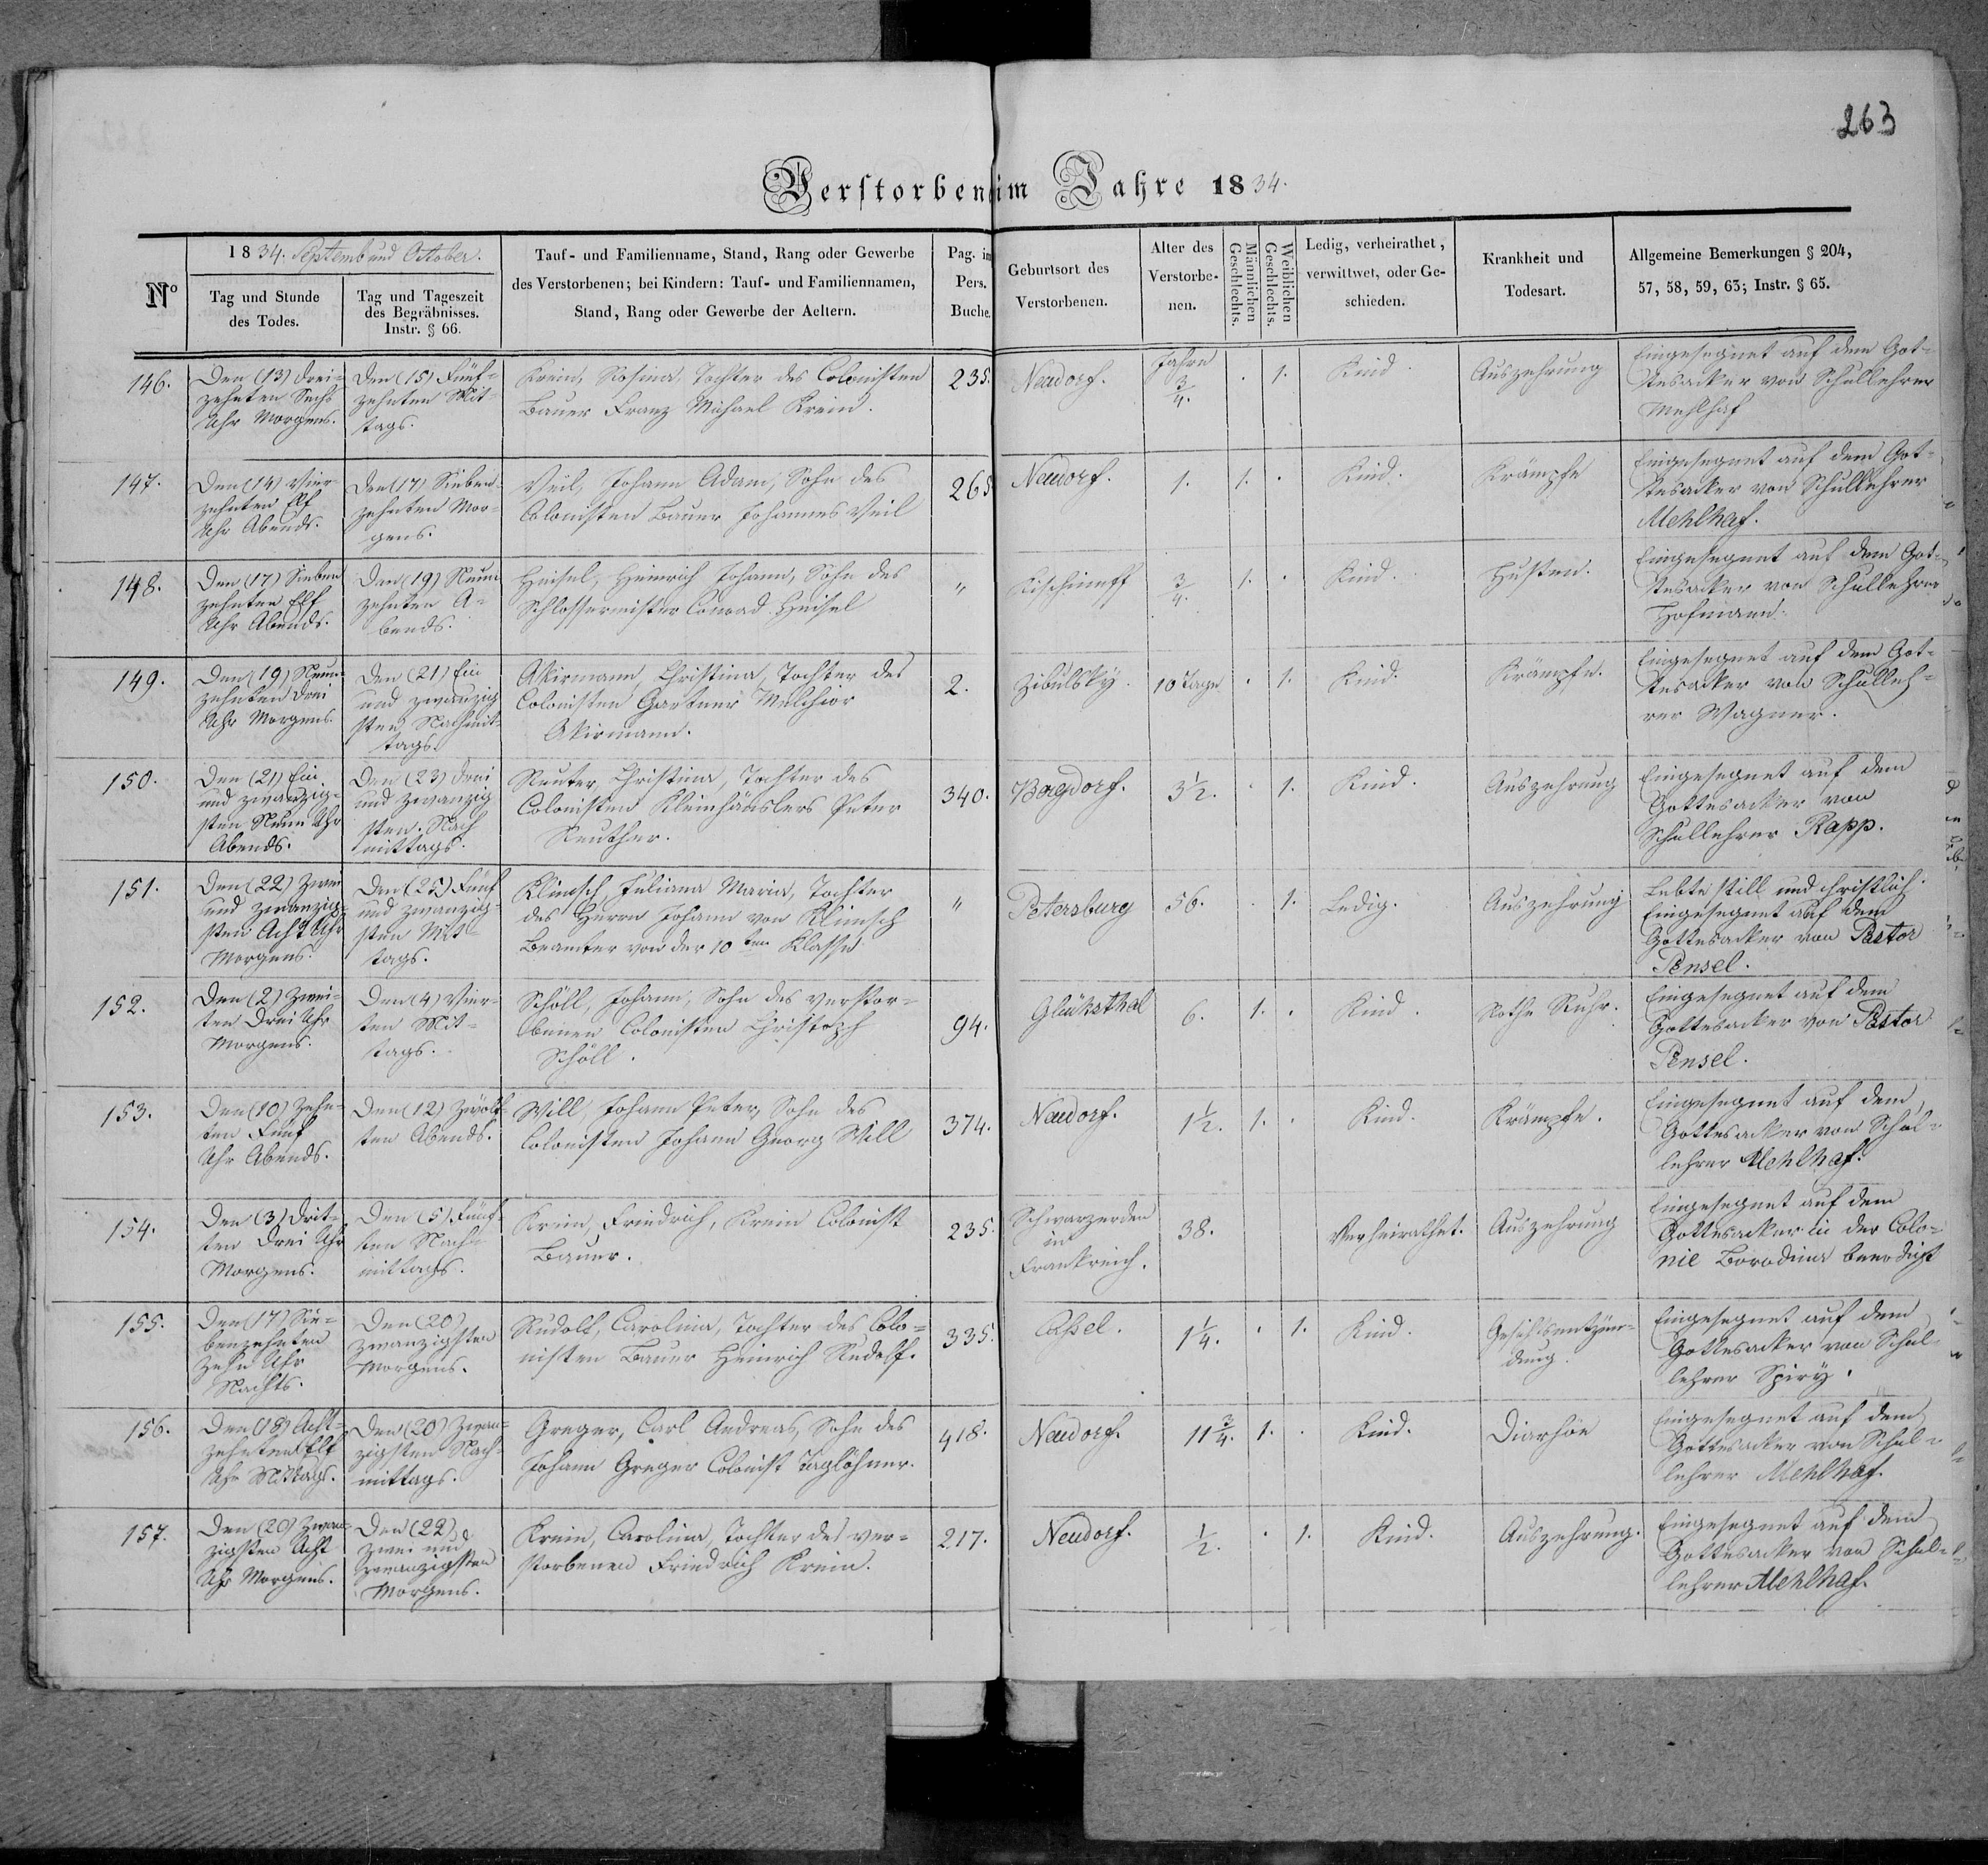 263
Verstorben im Jahre 1834.
N° 
1834. Septemb und October.
Tag und Stunde
des Todes.
Tag und Tageszeit
des Begräbnisses.
Instr. § 66.
Tauf- und Familienname, Stand, Rang oder Gewerbe
des Verstorbenen; bei Kindern: Tauf- und Familiennamen,
Stand, Rang oder Gewerbe der Aeltern.
Pag. im
Pers.
Buche.
Geburtsort des
Verstorbenen.
Alter des
Verstorbe-
nen.
Männlichen
Geschlechts.
Weiblichen
Geschlechts.
Ledig, verheirathet,
verwittwet, oder Ge-
schieden.
Krankheit und
Todesart.
Allgemeine Bemerkungen § 204,
57, 58, 59, 63; Instr. § 65.
146.
Den (13) drei-
zehnten Sechs
Uhr Morgens.
Den (15) Fünf-
zehnten Mit-
tags.
Krein, Rosina, Tochter des Colonisten
Bauer Franz Michael Krein.
235.
Neudorf.
Jahre
3/4.
. 1.
Kind.
Auszehrung
Eingesegnet auf dem Got-
tesacker von Schullehrer
Mehlhaf
147.
Den (14) Vier-
zehnten Elf
Uhr Abends.
Den (17) Sieben-
zehnten Mor-
gens.
Veil, Johann Adam, Sohn des
Colonisten Bauer Johannes Veil
265
Neudorf.
1.
1. .
Kind.
Krämpfe
Eingesegnet auf dem Got-
tesacker von Schullehrer
Mehlhaf.
148.
Den (17) Sieben
zehnten Elf
Uhr Abends.
Den (19) Neun
zehnten A-
bends.
Heisel, Heinrich Johann, Sohn des
Schlossermeister Conrad Heisel
"
Kischineff
3/4.
1. .
Kind.
Husten.
Eingesegnet auf dem Got-
tesacker von Schullehrer
Hofmann.
149.
Den (19) Neun-
zehnten Drei
Uhr Morgens.
Den (21) Ein
und zwanzig
sten Nachmit-
tags.
Akirmann, Christina, Tochter des
Colonisten Gartner Melchior
Akirmann.
2.
Zibulsky.
10 Tage
. 1.
Kind.
Krämpfe.
Eingesegnet auf dem Got-
tesacker von Schulleh-
rer Wagner.
150.
Den (21) Ein
und zwanzig-
sten Neun Uhr
Abends.
Den (23) drei
und zwanzig
sten. Nach
mittags.
Reuter, Christina, Tochter des
Colonisten Kleinhäuslers Peter
Reuther.
340.
Bergdorf.
3 1/2.
. 1.
Kind.
Auszehrung
Eingesegnet auf dem
Gottesacker von
Schullehrer Rapp.
151.
Den (22) Zwei
und zwanzig-
sten Acht Uhr
Morgens.
Den (25) Fünf
und zwanzig-
sten Mit-
tags.
Klimsch Juliana Maria, Tochter
des Herrn Johann von Klimsch
Beamter von der 10ten Klasse
"
Petersburg
56.
. 1.
Ledig.
Auszehrung
Lebte still und christlich.
Eingesegnet auf dem
Gottesacker von Pastor
Pensel.
152.
Den (2) Zwei-
ten Drei Uhr
Morgens.
Den (4) Vier-
ten Mit-
tags.
Schöll, Johann, Sohn des verstor-
benen Colonisten Christoph
Schöll.
94.
Glüksthal
6.
1. .
Kind.
Rothe Ruhr.
Eingesegnet auf dem
Gottesacker von Pastor
Pensel.
153.
Den (10) Zehn-
ten Fünf
Uhr Abends.
Den (12) Zwölf-
ten Abends.
Will, Johann Peter, Sohn des
Colonisten Johann Georg Will
374.
Neudorf.
1 1/2.
1. .
Kind.
Krämpfe.
Eingesegnet auf dem
Gottesacker von Schul-
lehrer Mehlhaf.
154.
Den (3) Drit-
ten Drei Uhr
Morgens.
Den (5) Fünf-
ten Nach-
mittags.
Krein, Friedrich, Krein Colonist
Bauer.
235.
Schwarzerden
in
Frankreich.
38.
Verheirathet.
Auszehrung
Eingesegnet auf dem
Gottesacker in der Colo-
nie Borodina
155.
Den (17) Sie-
benzehnten
Zehn Uhr
Nachts.
Den (20)
Zwanzigsten
Morgens.
Rudolf, Carolina, Tochter des Colo-
nisten Bauer Heinrich Rudolf.
335.
Cassel.
1 1/4.
. 1.
Kind.
Gesichtsentzün-
dung.
Eingesegnet auf dem
Gottesacker von Schul
lehrer Spiry.
156.
Den (18) Acht-
zehnten Elf
Uhr Mittags.
Den (20) Zwan-
zigsten Nach-
mittags.
Greger, Carl Andreas, Sohn des
Johann Greger Colonist Taglöhner.
418.
Neudorf.
11 3/4.
1. .
Kind.
Diarhöe
Eingesegnet auf dem
Gottesacker von Schul-
lehrer Mehlhaf.
157.
Den (20) Zwan-
zigsten Acht
Uhr Morgens.
Den (22)
Zwei und
zwanzigsten
Morgens.
Krein, Carolina, Tochter des ver-
storbenen Friedrich Krein.
217.
Neudorf.
1/2.
. 1.
Kind.
Auszehrung.
Eingesegnet auf dem
Gottesacker von Schul-
lehrer Mehlhaf.